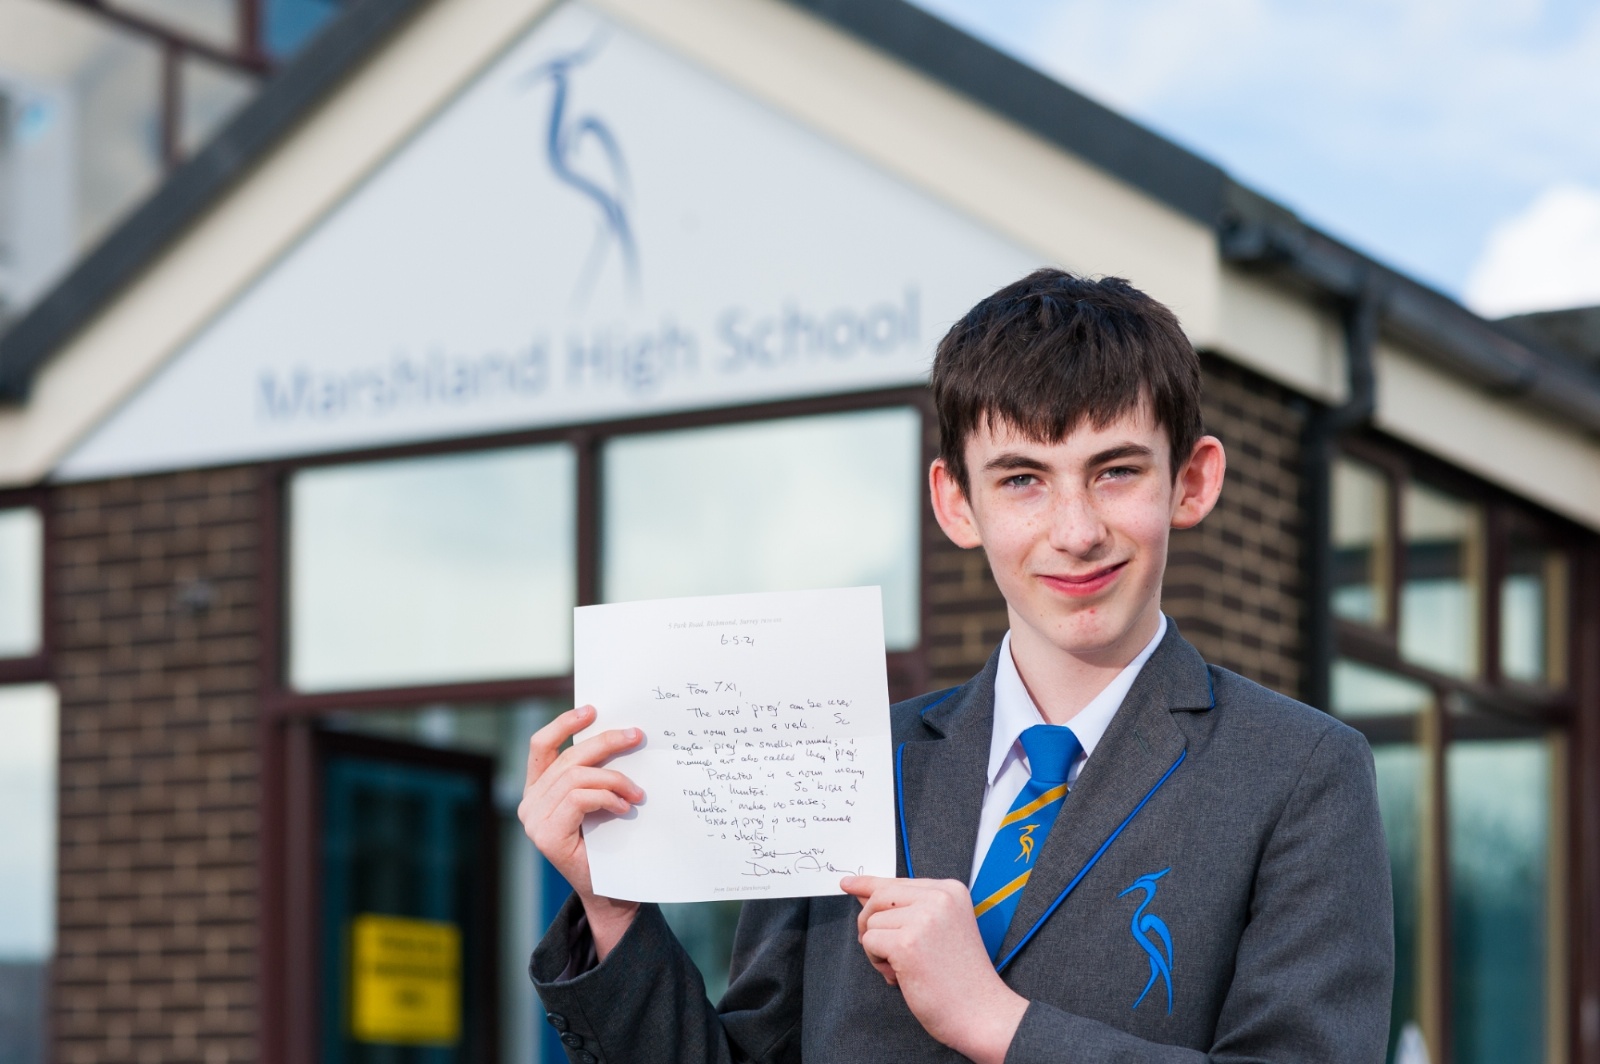 Marshland High School
5 Park Road, Richmond, Surrey
6.5.21
Dear Form 7X1,
The word 'prey' can be used
as a noun and as a verb. So
eagles 'prey' on smaller animals; &
animals are also called their 'prey'.
'Predators' is a noun meaning
roughly 'hunters'. So 'birds of
hunters' makes no sense; or
'birds of prey' is very accurate
– & shorter!
Best wishes
David
from David Attenborough